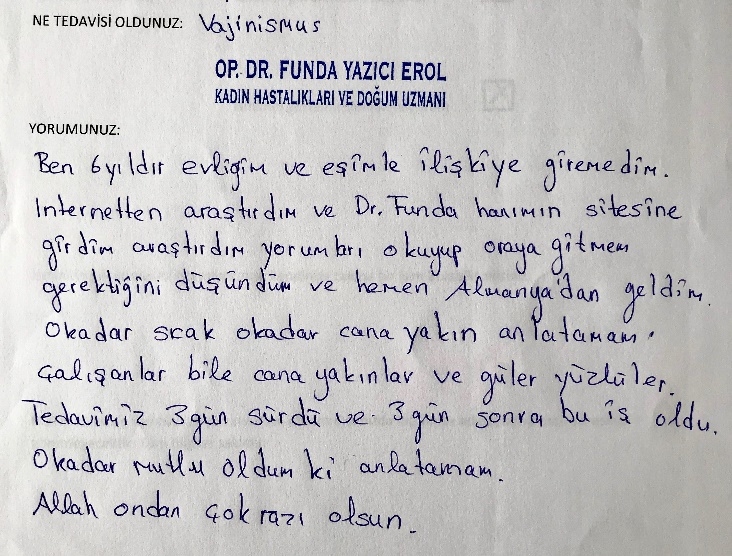 NE TEDAVİSİ OLDUNUZ: Vajinismus
OP. DR. FUNDA YAZICI EROL
KADIN HASTALIKLARI VE DOĞUM UZMANI
YORUMUNUZ:
Ben 6 yıldır evliğim ve eşimle ilişkiye giremedim.
Internetten araştırdım ve Dr. Funda hanımın sitesine
girdim araştırdım yorumları okuyup oraya gitmem
gerektiğini düşündüm ve hemen Almanya'dan geldim.
Okadar scak okadar cana yakın anlatamam.
Çalışanlar bile cana yakınlar ve güler yüzlüler.
Tedavimiz 3 gün sürdü ve 3 gün sonra bu iş oldu.
Okadar mutlu oldum ki anlatamam.
Allah ondan çok razı olsun.